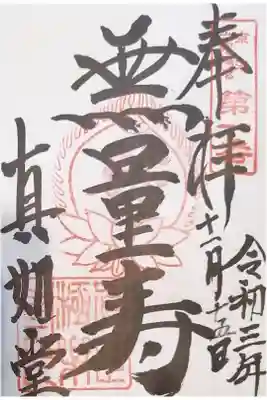 奉拝
令和三年
十一月十五日
無量寿
真如堂